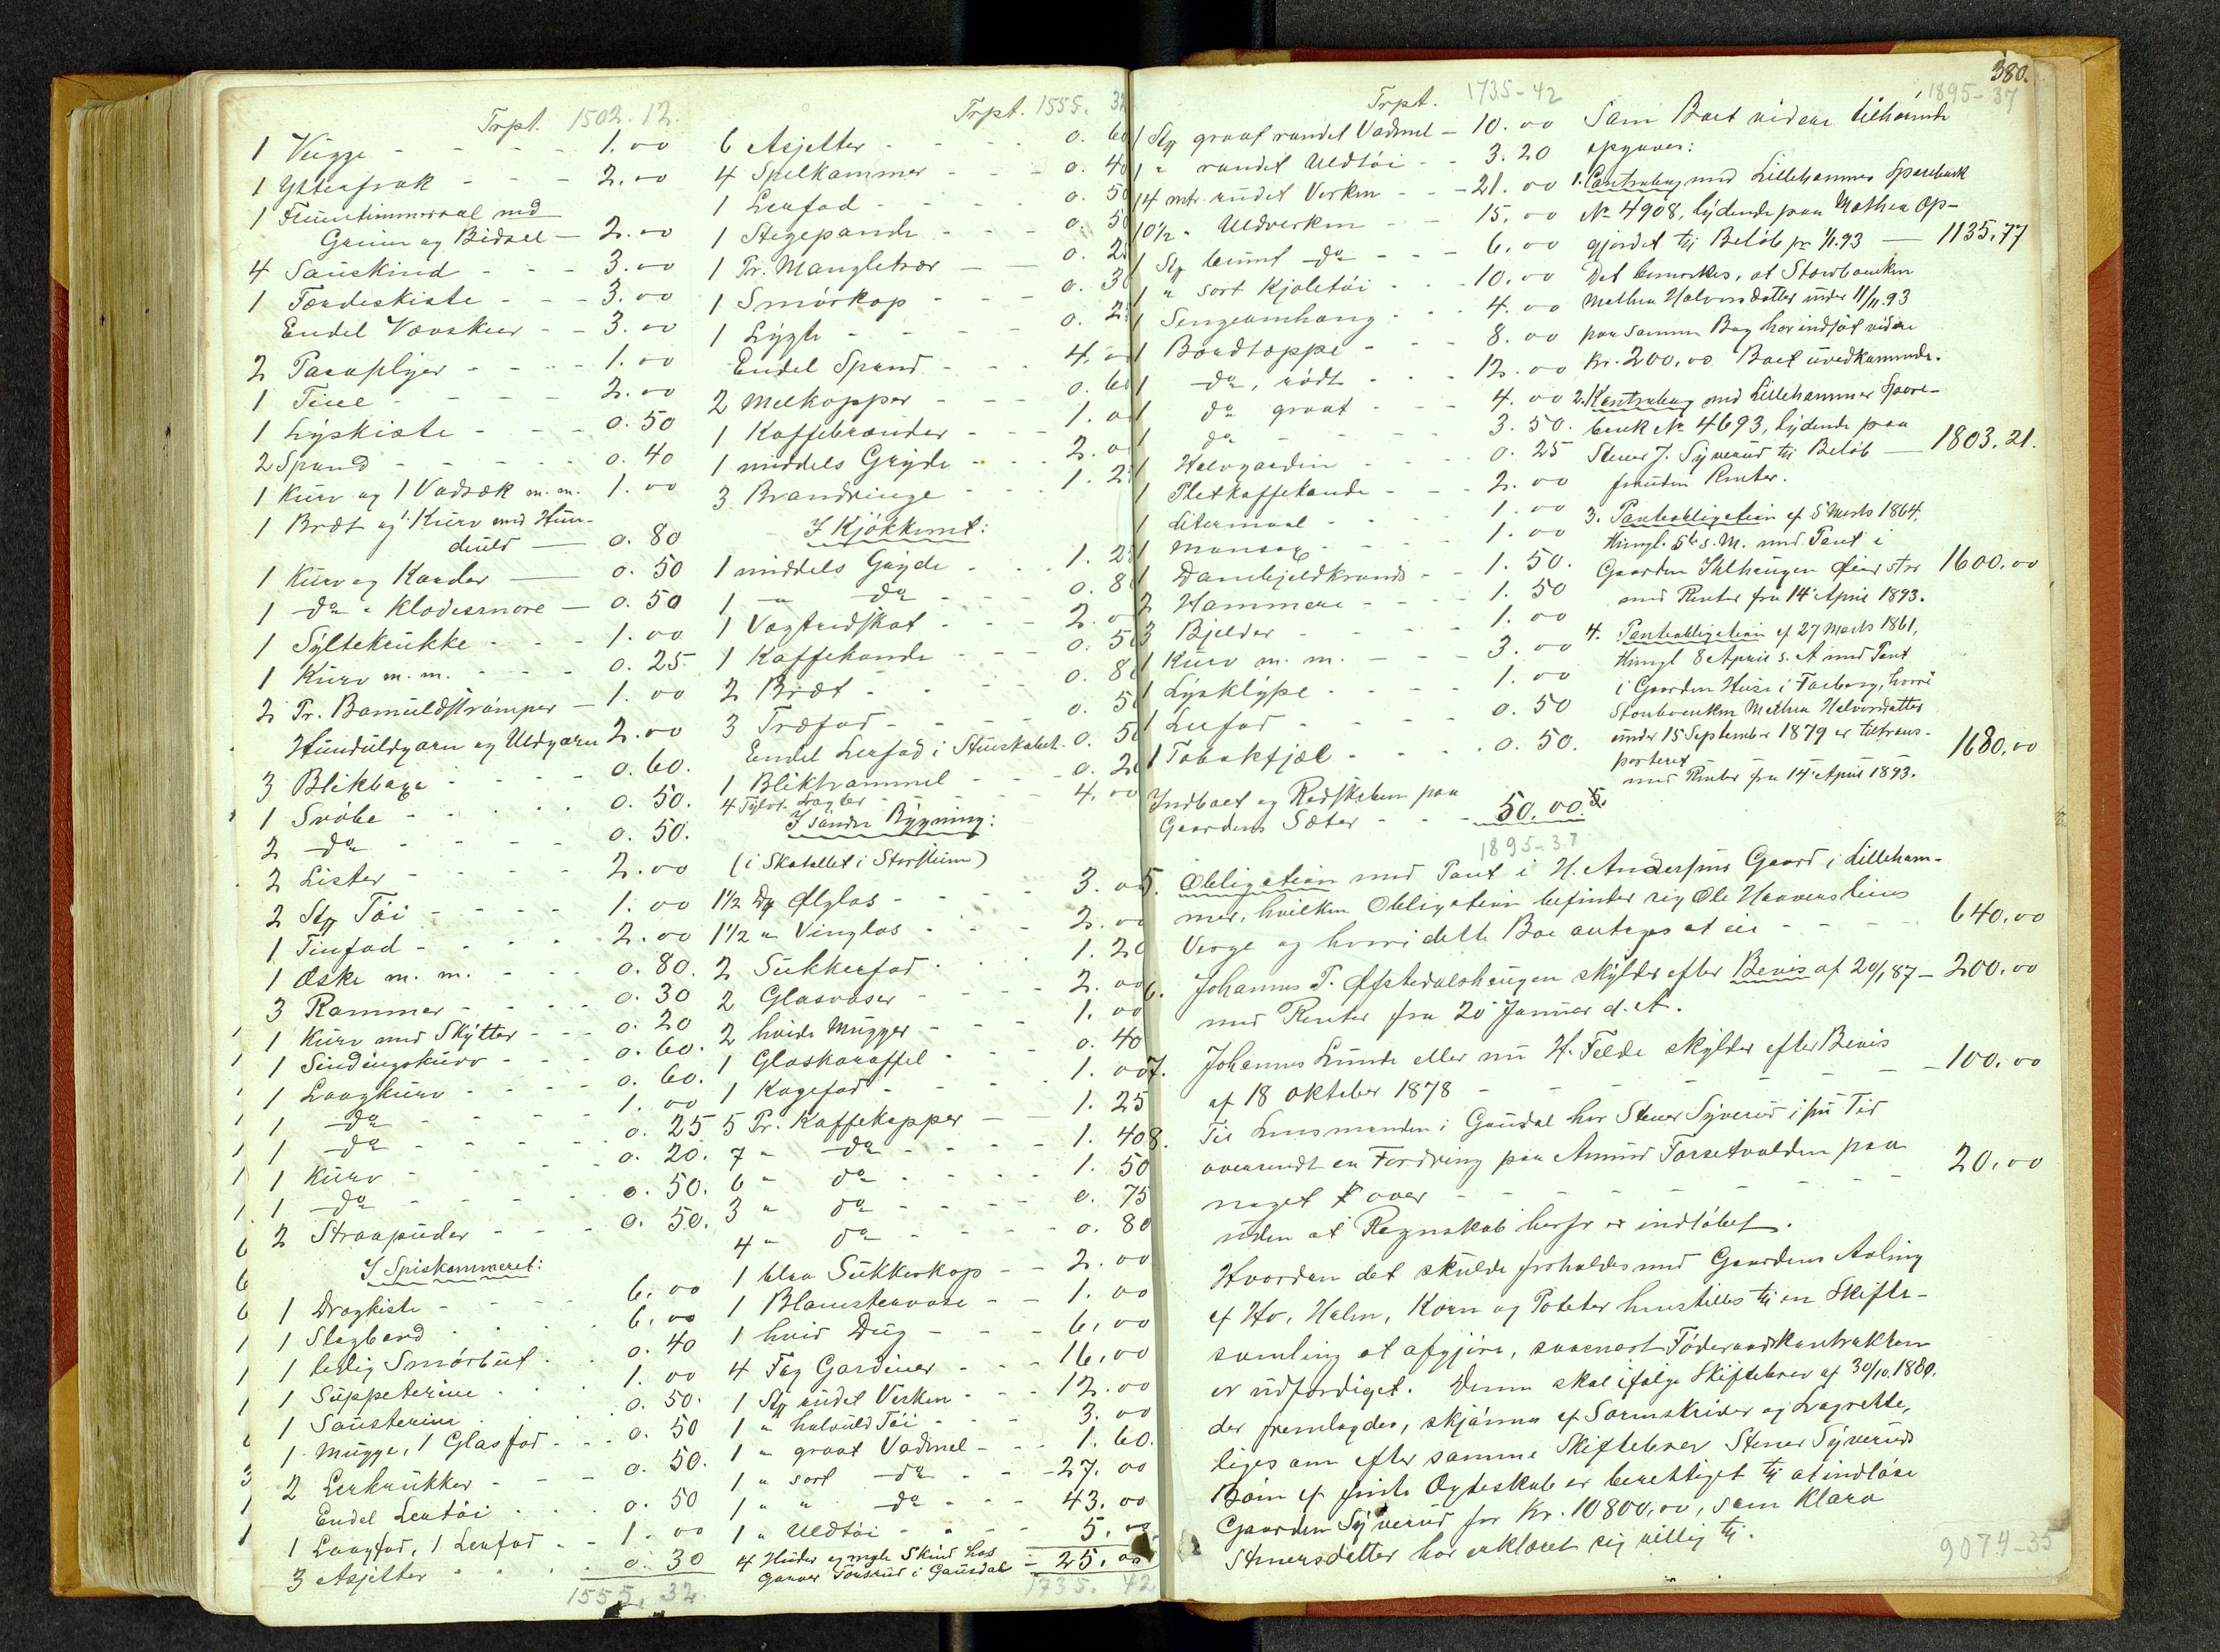 Trpt. 1502.12.
1 Vugge - - - - 1.00
1 Ytterfrak - - - 2.00
1 Fruentimmersaal med
Grime og Bidsel - 2.00
4 Sauskind - - - 3.00
1 Færdeskiste - - - 3.00
Endel Vævskeer - - 3.00
2 Paraplyer - - - - 1.00
1 Tine - - - - 2.00
1 Lyskiste - - - 0.50
2 Spand - - - - 0.40
1 Kurv og 1 Vadsæk m.m. 1.00
1 Bræt og 1 Kurv med Hun-
deuld — 0.80
1 Kurv og Karder — 0.50
1 do " Klodesnore — 0.50
1 Syltekrukke - - - 1.00
1 Kurv m.m. - - - 0.25
2 Pr. Bomuldstrømper - 1.00
Hunduldgarn og Uldgarn 2.00
3 Blikbaxe - - - - 0.60.
1 Svøbe - - - - 0.50.
2 do - - - - 0.50.
2 Lister - - - - 2.00
2 Stp Tøi - - - - 1.00
1 Tinfad - - - - 2.00
1 Æske m.m. - - - 0.80.
3 Rammer - - - - 0.30
1 Kurv med Skytter - - - 0.20
1 Sindingskurv - - - 0.60.
1 Laagkurv - - - - 0.60.
1 do - - - - 1.00
1 do - - - - 0.25
1 Kurv - - - - 0.20.
1 do - - - - 0.50.
2 Straapuder - - - 0.50.
I Spiskammeret:
1 Dragkiste - - - - 6.00
1 Slagbord - - - - 6.00
1 ledig Smørbut - - 0.40
1 Suppeterine - - - 1.00
1 Sausterine - - - 0.50.
1 Mugge, 1 Glasfad - - - 0.50
2 Lerkrukker - - - 0.50.
Endel Lertøi - - - 0.50
1 Laagfad, 1 Lerfad - - 1.00
3 Asjetter - - - - 0.30
1555.32.
Trpt. 1555. 32
6 Asjetter - - - - 0.60
4 Spilkummer - - - 0.40
1 Lerfad - - - - 0.50
1 Stegepande - - - 0.50
1 Pr. Mangletrær — 0.2
1 Smørkop - - - 0.30
1 Lygte - - - - 0.2
Endel Spand - - - 4.00
2 Melkopper - - - 0.60
1 Kaffebrænder - - - 1.00
1 middels Gryde - - - 2.00
3 Brandringe - - - 1.2
I Kjøkkenet:
1 middels Gryde - - - 1.2
1 " do - - - 0.80
1 Vogtredskat - - - 2.00
1 Kaffekande - - - 0.50
2 Bræt - - - - 0.80
3 Træfad - - - - 0.50
Endel Lerfad i Stueskabet. 0.50
1 Bliktrommel - - - 0.20
4 Tylvt. Lagter - - - 4.00
I søndre Bygning:
(i Skatollet i Storstuen)
1½ Ds Ølglas - - - 3.00
1½ " Vinglas - - - 2.00
2 Sukkerfad - - - 1.20
2 Glasvaser - - - 2.00
2 hvide Mugger - - - 1.00
1 Glaskaraffel - - - 0.40
1 Kagefad - - - - 1.00
5 Pr. Kaffekopper — 1.25
7 " do - - - 1.40
6 " do - - - 1.50
3 " do - - - 0.75
4 " do - - - 0.80
1 blaa Sukkerkop - - 2.00
1 Blomstervase - - 1.00
1 hvid Dug - - - 6.00
4 Fag Gardiner - - - 16.00
1 Stp rudet Verken - - - 12.00
1 " halvuld Tøi - - - 3.00
1 " graat Vadmel - - - 1.60.
1 " sort do - - - 27.00
1 " " do - - - 43.00
1 " Uldtøi - - - - 5.00
4 Huder og nogle Skind hos
Garver Tonsrud i Gausdal - 25.00
1735. 42
380.
Trpt. 1735-42
1 Stp graat randet Vadmel - 10.00
1 " randet Uldtøi - - 3.20
14 mtr. rudet Verken - - - 21.00
10½ " Uldverken - - 15.00
1 Stp brunt do - - - 6.00
1 " sort Kjoletøi - - - 10.00
1 Sengeomhang - - - 4.00
1 Bordtæppe - - - 8.00
1 do, rødt - - - 12.00
1 do graat - - - 4.00
1 do - - - - 3.50.
1 Halvgardin - - - - 0.25
1 Pletkaffekande - - - 2.00
1 Litermaal - - - - 1.00
1 Mansag - - - - 1.00
1 Dambjeldkrands - - 1.50.
2 Hammere - - - - 1.50
3 Bjelder - - - - 1.00
1 Kurv m.m. - - - - 3.00
1 Lysklype - - - - 1.00
1 Lerfad - - - - 0.50
1 Tobaksfjæl - - - - 0.50.
Indboet og Redskaben paa
Gaardens Sæter - - - 50.00
1895-37
1895-37
Som Boet videre tilhørende
opgaves:
1. Contrabog med Lillehammer Sparebank
No 4908, lydende paa Mathea op-
gjordet til Beløb pr 1/1.93 — 1135.77
Det bemærkes, at Storboenken
Mathea Halvorsdatter under 11/11.93
paa samme Bog har indsat videre
Kr. 200.00 Boet uvedkommende.
2. Kontrabog med Lillehammer Spare-
bank No 4693, lydende paa
Stener J. Syverud til Beløb — 1803.21.
foruden Renter.
3. Pantobligation af 5 Marts 1864,
thingl. 5te s.M. med Pant i
Gaarden Ihlhaugen Øier stor 1600.00
med Renter fra 14 April 1893.
4. Pantobligation af 27 Marts 1861,
thingl 8 April s. A med Pant
i Gaarden Huse i Faaberg, hvori
Storboenken Mathea Halvorsdatter
under 15 September 1879 er tiltrans-
porteret 1680.00
med Renter fra 14 April 1893.
5. Obligation med Pant i H. Andersens Gaard i Lilleham-
mer, hvilken Obligation befinder sig Ole Haavensteins
Verge og hvori dette Bo antages at eie - - - 640.00
6. Johannes P. Øfstedalshaugen skylder efter Bevis af 20/1 87 - 200.00
med Renter fra 20 Januar d. A.
7. Johannes Lunde eller nu H. Felde skylder efter Bevis
af 18 oktober 1878 - - - - - - 100.00
8. Til Lensmanden i Gausdal har Stener Syverud i sin Tid
oversendt en Fordring paa Amund Forsetvolden paa
noget over - - - - - - - 20.00
uden at Regnskab herfor er indløbet.
Hvordan det skulde forholdes med Gaardens Avling
af Hø, Halm, Korn og Poteter henstilles til en Skifte-
samling at afgjøre, saasnart Føderaadskontrakten
er udfærdiget. Denne skal ifølge Skiftebrev af 30/10. 1880.
der fremlagdes, skjønnes af Sorenskriver og Lagrette,
ligesom efter samme Skiftebrev Stener Syveruds
Børn af første Ægteskab er berettiget til at indløse
Gaarden Syverud for Kr. 10800.00, som Klara
Stenersdatter har erklæret sig villig til.
9074-35